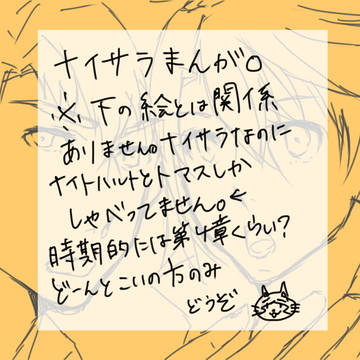 ナイサラまんが。
※下の絵とは関係
ありません。ナイサラなのに
ナイトハルトとトマスしか
しゃべってません。←
時期的には第4章くらい?
どーんとこいの方のみ
どうぞ